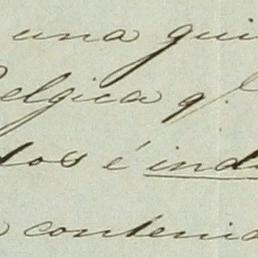 una qui
Belgica q.e
dos é ind
contenid